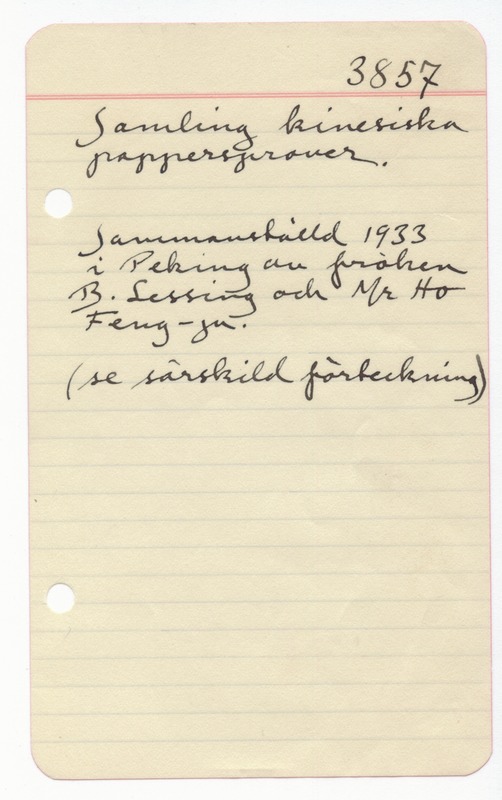 3857
Samling kinesiska
pappersprover.
Sammanställd 1933
i Peking av fröken
B. Lessing och Mr Ho
Feng-ju.
(se särskild förteckning)